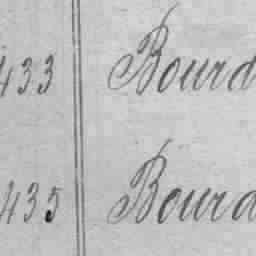 433 Bourd
435 Bourd